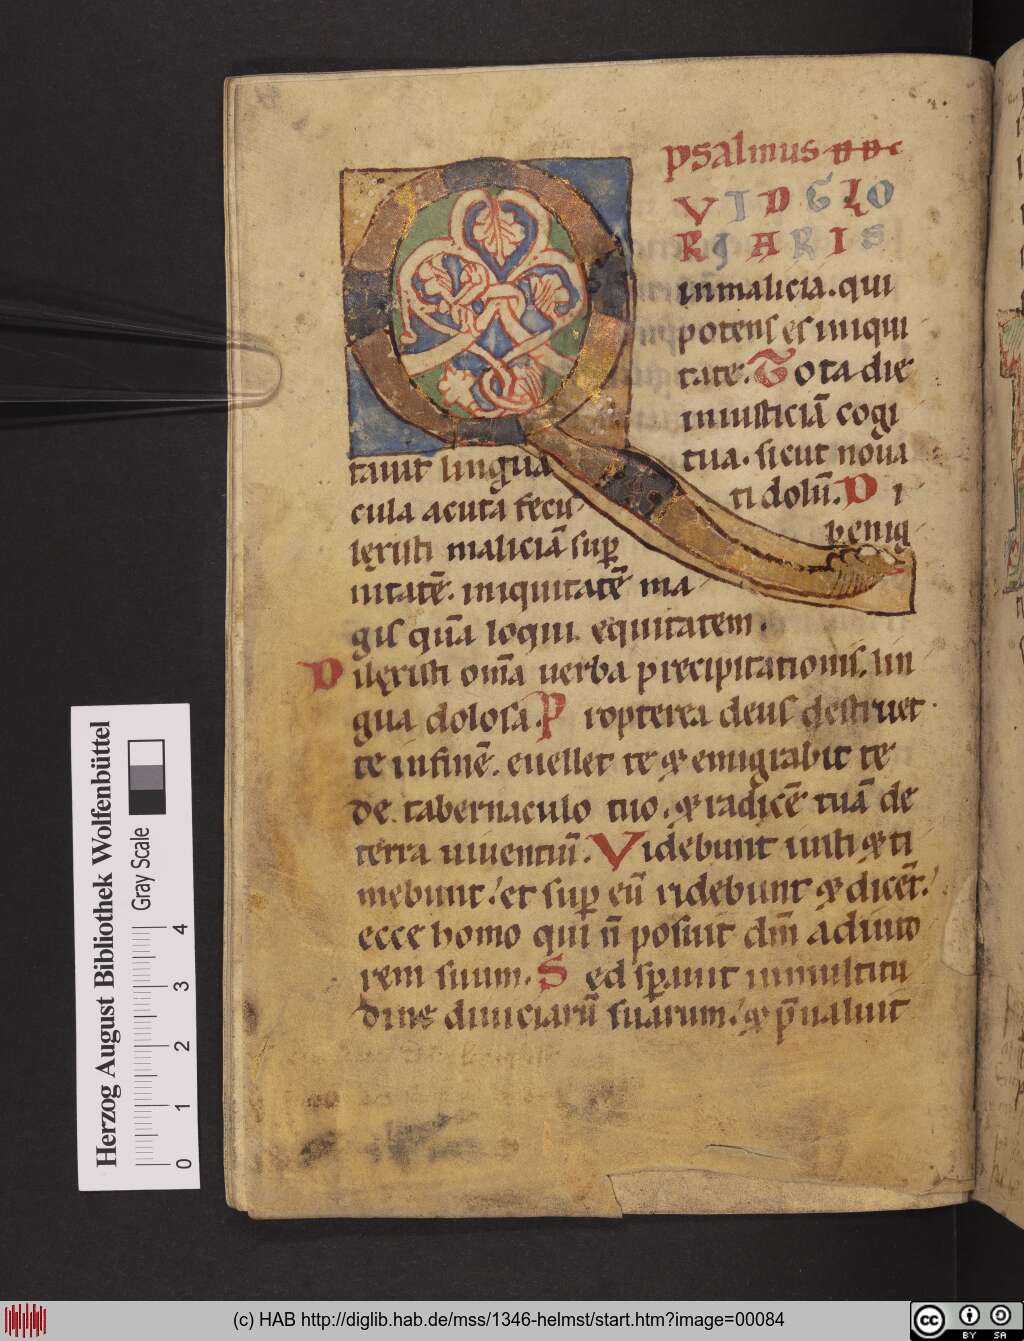 psalmus dd̄c
VID GLO
RIARIS
in malicia. qui
potens es iniqui
tate. Tota die
iniusticiā cogi
tauit lingua tua. sicut noua
cula acuta fecis ti dolū. D i
lęxisti maliciā sup̱ benig
nitatē. iniquitatē ma
gis quā loqui equitatem.
Dilęxisti om̄a uerba precipitationis. lin
gua dolosa. Propterea deus destruet
te in finē. euellet te & emigrabit te
de tabernaculo tuo. & radicē tuā de
terra uiuentiū. Videbunt iusti & ti
mebunt. et sup̱ eū ridebunt & dicēt.
ecce homo qui n̄ posuit dm̄ adiuto
rem suum. Sed sp̱auit in multitu
dine diuiciarū suarum. & p̄ualuit
Herzog August Bibliothek Wolfenbüttel
Gray Scale
0 1 2 3 4
(c) HAB http://diglib.hab.de/mss/1346-helmst/start.htm?image=00084
cc BY SA